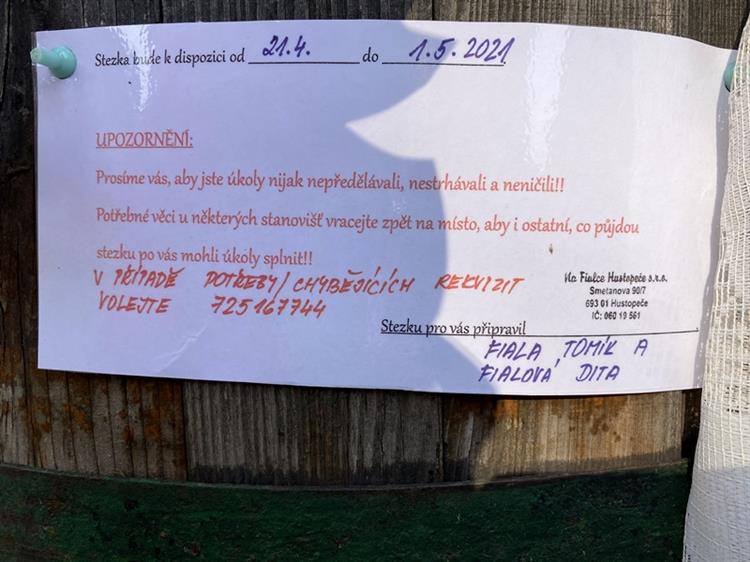 Stezka bude k dispozici od 21.4. do 1.5.2021
UPOZORNĚNÍ:
Prosíme vás, aby jste úkoly nijak nepředělávali, nestrhávali a neničili!!
Potřebné věci u některých stanovišť vracejte zpět na místo, aby i ostatní, co půjdou
stezku po vás mohli úkoly splnit!!
V PŘÍPADĚ POTŘEBY/CHYBĚJÍCÍCH REKVIZIT
VOLEJTE 725167744
Na Fialce Hustopeče s.r.o.
Smetanova 90/7
693 01 Hustopeče
IČ: 060 19 561
Stezku pro vás připravil
FIALA TOMÍK A
FIALOVÁ DITA